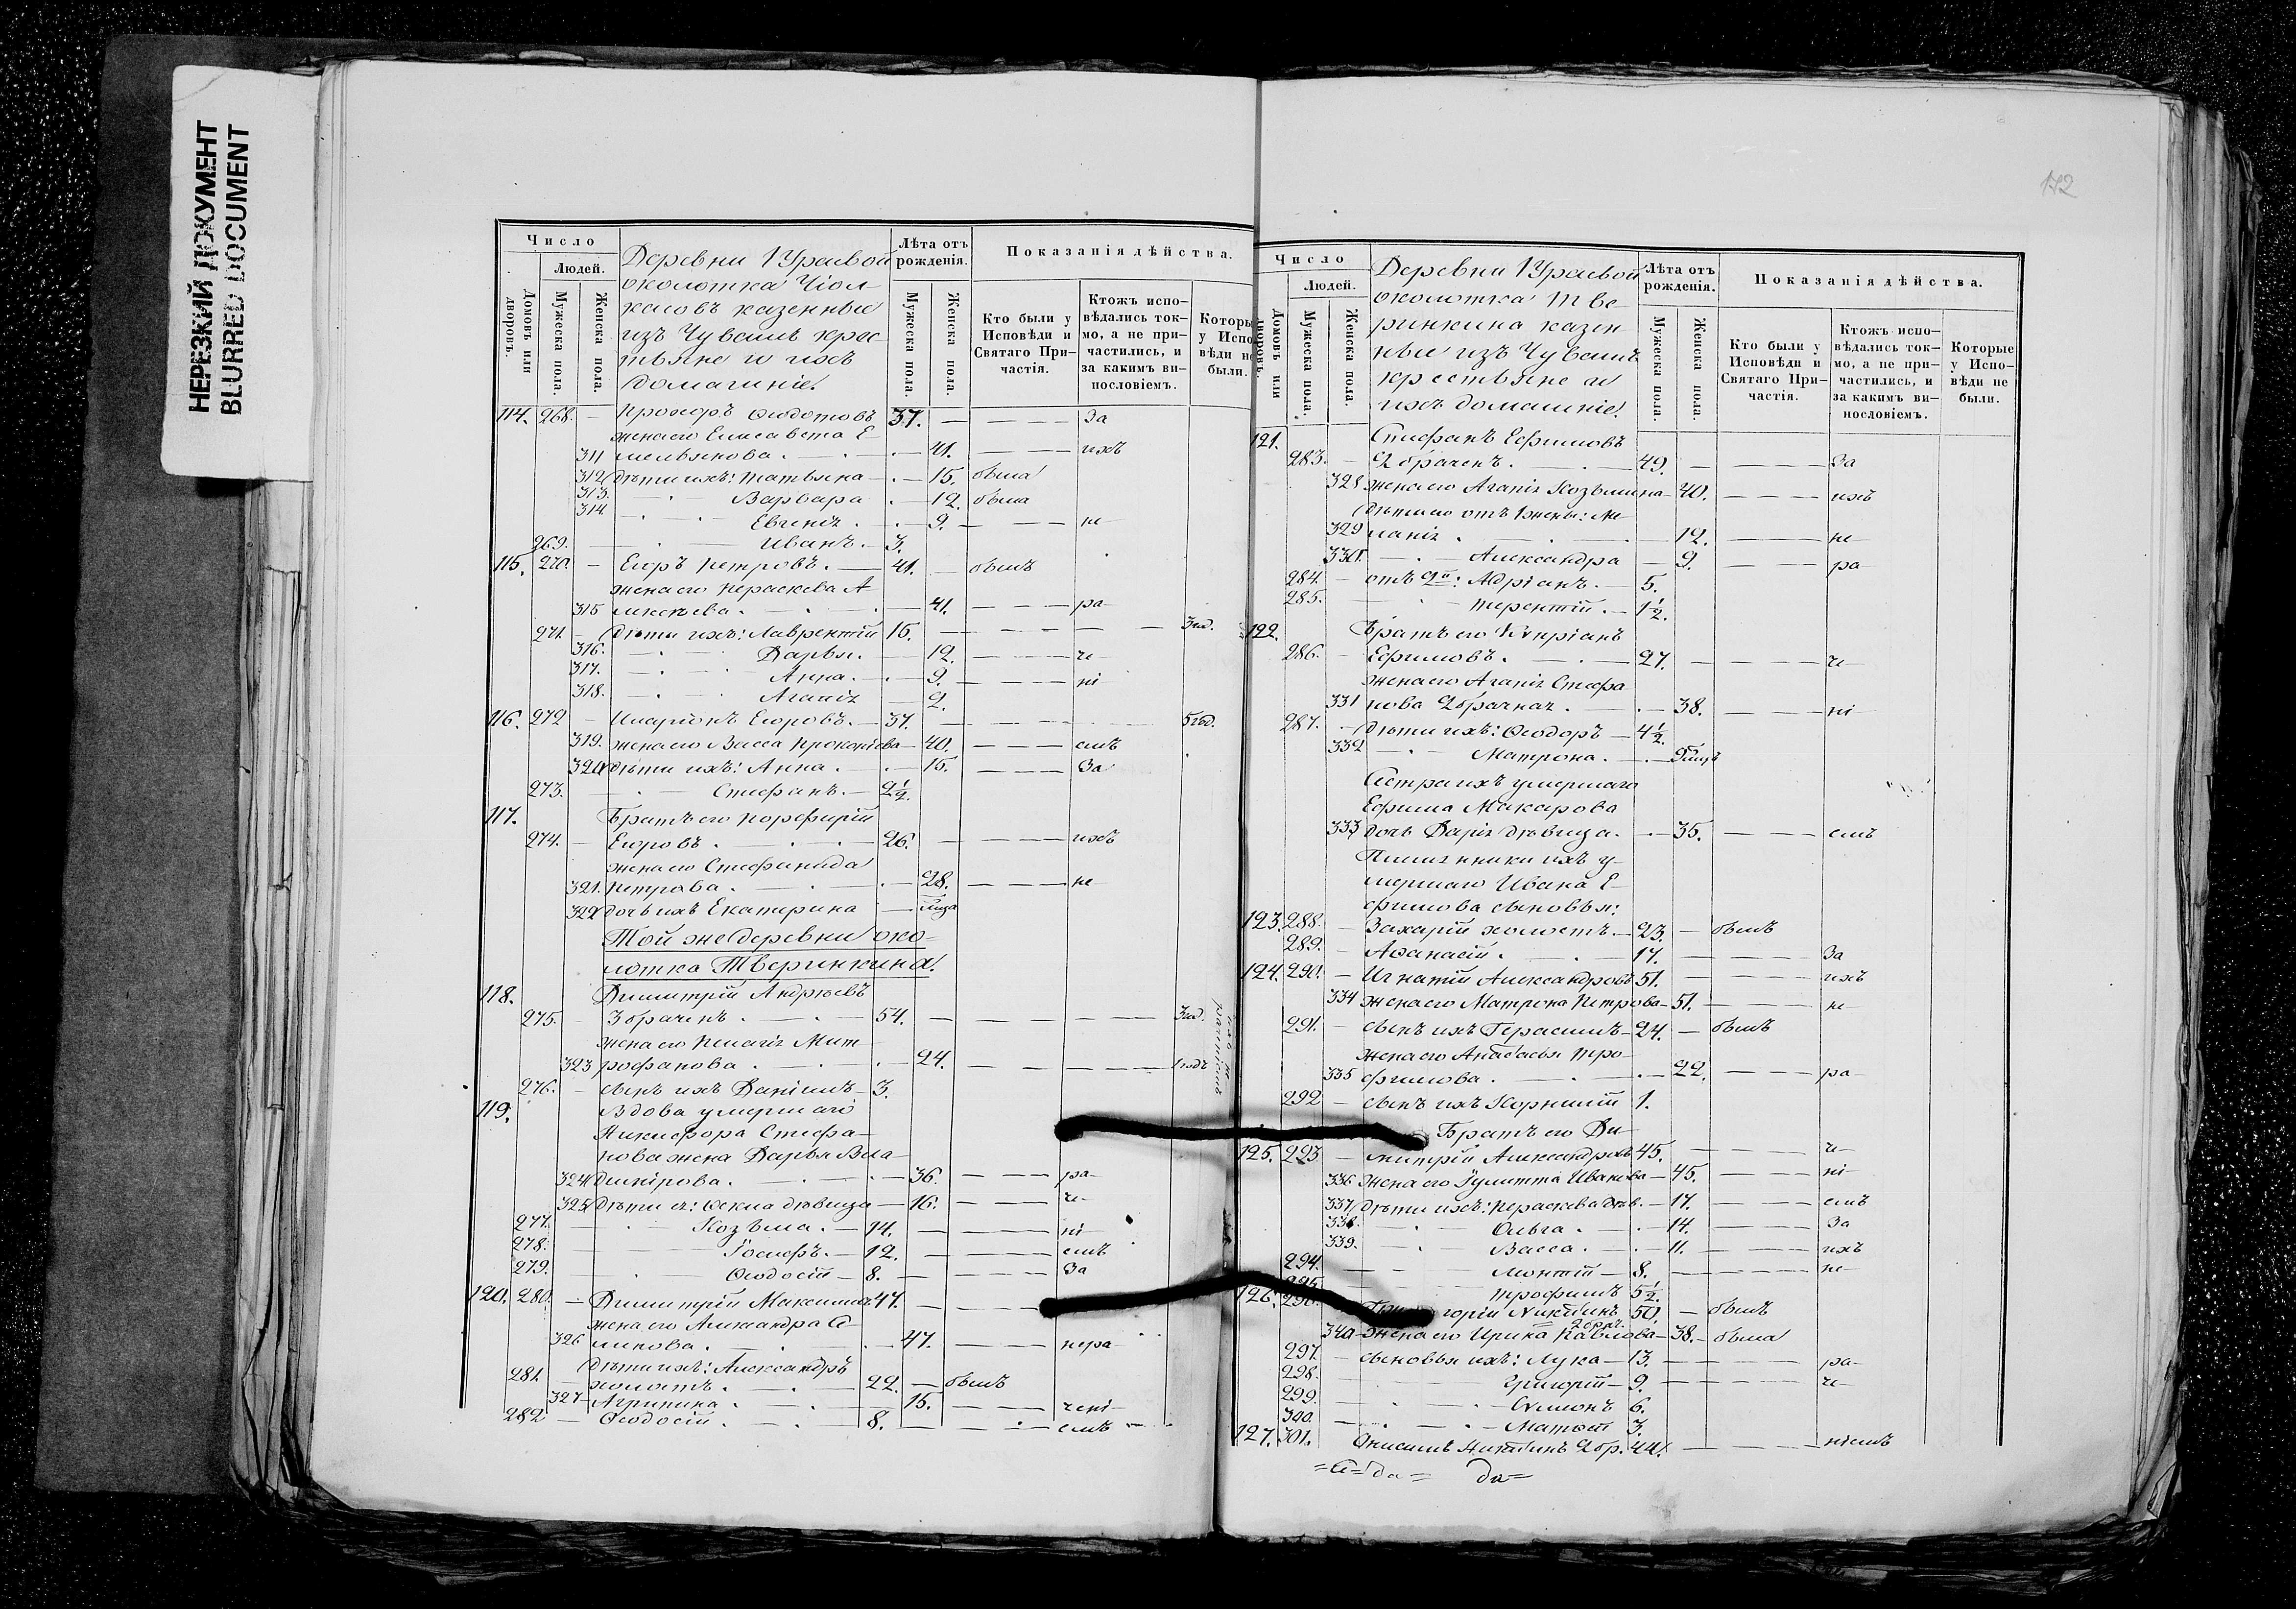 НЕРЕЗКИЙ ДОКУМЕНТ
BLURRED DOCUMENT
Число
Людей.
Домовъ или дворовъ.
Мужеска пола.
Женска пола.
Деревни
околотка
казенные
изъ Чувашъ крес-
тьяне и ихъ
домашніе.
Лѣта отъ рожденія.
Мужеска пола.
Женска пола.
Показанія дѣйства.
Кто были у Исповѣди и Святаго При-частія.
Ктожъ испо-вѣдались ток-мо, а не при-частились, и за какимъ ви-нословіемъ.
Которы у Испо вѣди не были.
114. 268. – Прохоръ Ѳедотовъ 37. – За
жена его Елисавета Е
311 мельянова. – 41. – ихъ
312 дѣти ихъ: Татьяна – 15. была
313. Варвара – 12. была
314 Евгенія. – 9. – не
269. Иванъ. – 3.
115. 270. – Егоръ Петровъ. – 41. – былъ
жена его Параскева А
315 лексѣева. – 41. – ра
271. – дѣти ихъ: Лаврентій 15. – 3 год.
316. Дарья. – 12. – че
317. Анна. – 9. – ні
318. Агапія – 2.
116. 272 – Иларіонъ Егоровъ. – 37. – 5 год.
319. жена его Васса Прокопіева – 40. – емъ
320 дѣти ихъ: Анна. – 15. – За
273. Стефанъ. – 2½.
117. Братъ его Порфирій
274. – Егоровъ. – 26. – ихъ
жена его Стефанида
321. Петрова. – 28. – не
322 дочь ихъ Екатерина –
Той же деревни око-
лотка Тверинкина.
118. Димитрій Андреевъ
275. – 3 браченъ. – 54. – 3 год.
жена его Пелагія Мит
323 рофанова. – 24. – 1 годъ
276. – сынъ ихъ Даніилъ – 3.
119. Вдова умершаго
Никифора Стефа-
нова жена Дарья Вла-
324 димірова. – 36. – ра-
325 дѣти ея: Ѳекла дѣвица – 16. – че-
277. Козьма. – 14. – ні-
278. Іосифъ. – 12. – емъ
279. Ѳеодосій – 8. – За
120. 280. – Димитрій Максимов 47. –
жена его Александра С
326 – 47. – нера-
281. дѣти ихъ: Александръ
холостъ. – 22. – былъ
327 – Агрипина. – 15. – чені-
282 – Ѳеодосій. – 8. – емъ
172
Число
Людей.
Домовъ или дворовъ.
Мужеска пола.
Женска пола.
Деревни
околотка Тве
ринкина казен
ные изъ Чувашъ
крестьяне и
ихъ домашніе.
Лѣта отъ рожденія.
Мужеска пола.
Женска пола.
Показанія дѣйства.
Кто были у Исповѣди и Святаго При-частія.
Ктожъ испо-вѣдались ток-мо, а не при-частились, и за какимъ ви-нословіемъ.
Которые у Испо-вѣди не были.
121. Стефанъ Ефимовъ
283. – 2 браченъ. – 49. – За
328 жена его Агапія Козьмина – 40. – ихъ
дѣти его отъ 1 жены: Ме-
329 ланія. – 12. – не
330. Александра – 9. – ра
284. – отъ 2й: Адріанъ. – 5.
285. Терентій. – 1½.
122. Братъ его Кипріанъ
286. – Ефимовъ. – 27. – че
жена его Агапія Стефа
331 нова 2 брачная. – 38. – ні
287. – дѣти ихъ: Ѳеодоръ – 4½.
332 Матрона. –
Сестра ихъ умершаго
Ефима Макарова
333 дочь Дарія дѣвица. – 35. – емъ
Племянники ихъ у-
мершаго Ивана Е-
фимова сыновья:
123. 288. – Захарій холостъ. – 23. – былъ
289. – Аѳанасій. – 17. – За
124. 290. – Игнатій Александровъ 51. – ихъ
334 жена его Матрона Петрова – 51. – не
291. – сынъ ихъ Герасимъ – 24. – былъ
жена его Анастасья Тро-
335 фимова. – 22. – ра
292 – сынъ ихъ Корнилій 1.
Братъ его Ди-
125. 293 – митрій Александровъ 45. – че-
336 жена его Іулитта Иванова – 45. – ні-
337 дѣти ихъ: Параскева дѣв. – 17. – емъ
338. Ольга. – 14. – За
339. Васса. – 11. – ихъ
294. – 8. – не-
295. Трофимъ 5½.
126. 296. – Григорій Никитинъ 50. – былъ
2 брач.
340 – жена его Ирина Павлова – 38. – была
297. – сыновья ихъ: Лука – 13. – ра-
298. Григорій – 9. – че-
299. Симонъ 6.
300. Матвѣй 3.
127. 301. Онисимъ Никитинъ 2 бр. 44. – ніемъ